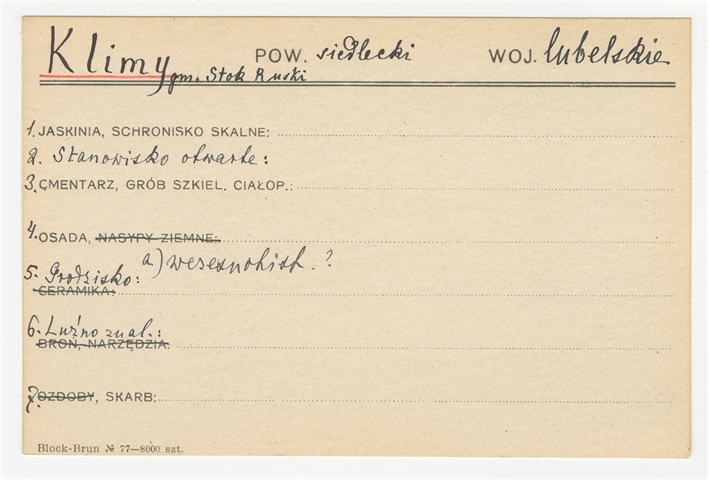 Klimy POW. siedlecki WOJ. lubelskie
gm. Stok Ruski
1. JASKINIA, SCHRONISKO SKALNE:
2. Stanowisko otwarte:
3. CMENTARZ, GRÓB SZKIEL. CIAŁOP.:
4. OSADA, NASYPY ZIEMNE:
5. Grodzisko: a) wczesnohist. ?
CERAMIKA:
6. Luźno znal.:
BROŃ, NARZĘDZIA:
7. OZDOBY, SKARB:
Block-Brun № 77—8000 szt.